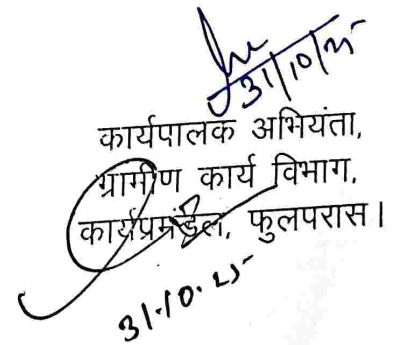 31/10/25
कार्यपालक अभियंता,
ग्रामीण कार्य विभाग,
कार्यप्रमंडल, फुलपरास।
31.10.25